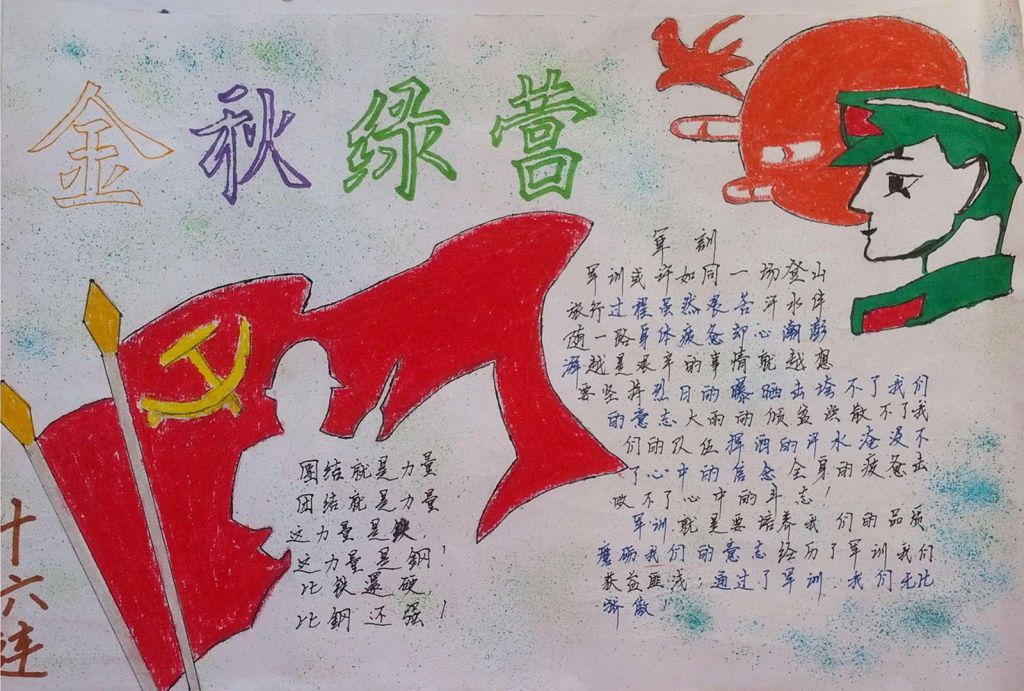 金秋绿营
军训
军训或许如同一场登山
旅行过程虽然艰苦汗水伴
随一路身体疲惫却心潮澎
湃越是艰辛的事情就越想
要坚持烈日的曝晒击垮不了我们
的意志大雨的倾盆浇散不了我
们的队伍挥洒的汗水淹没不
了心中的信念全身的疲惫击
败不了心中的斗志！
军训就是要培养我们的品质
磨砺我们的意志经历了军训我们
获益匪浅；通过了军训，我们无比
骄傲！
团结就是力量
团结就是力量
这力量是铁，
这力量是鋼！
比铁还硬，
比鋼还强！
十六连